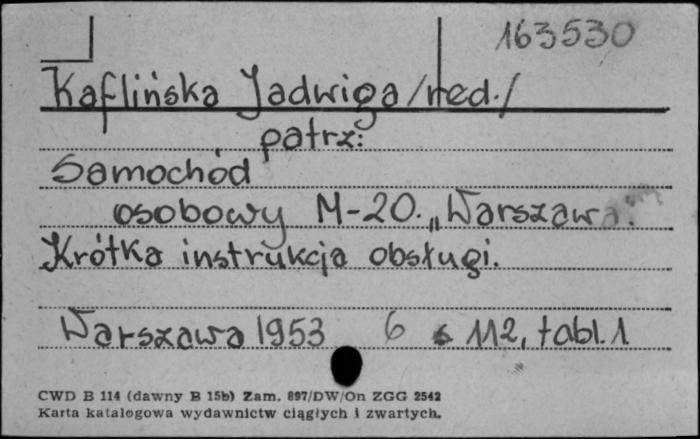 163530
Kaflińska Jadwiga /red./
patrz:
Samochód
osobowy M-20. „Warszawa".
Krótka instrukcja obsługi.
Warszawa 1953 6 s 112, tabl. 1
CWD B 114 (dawny B 15b) Zam. 897/DW/On ZGG 2542
Karta katalogowa wydawnictw ciągłych i zwartych.